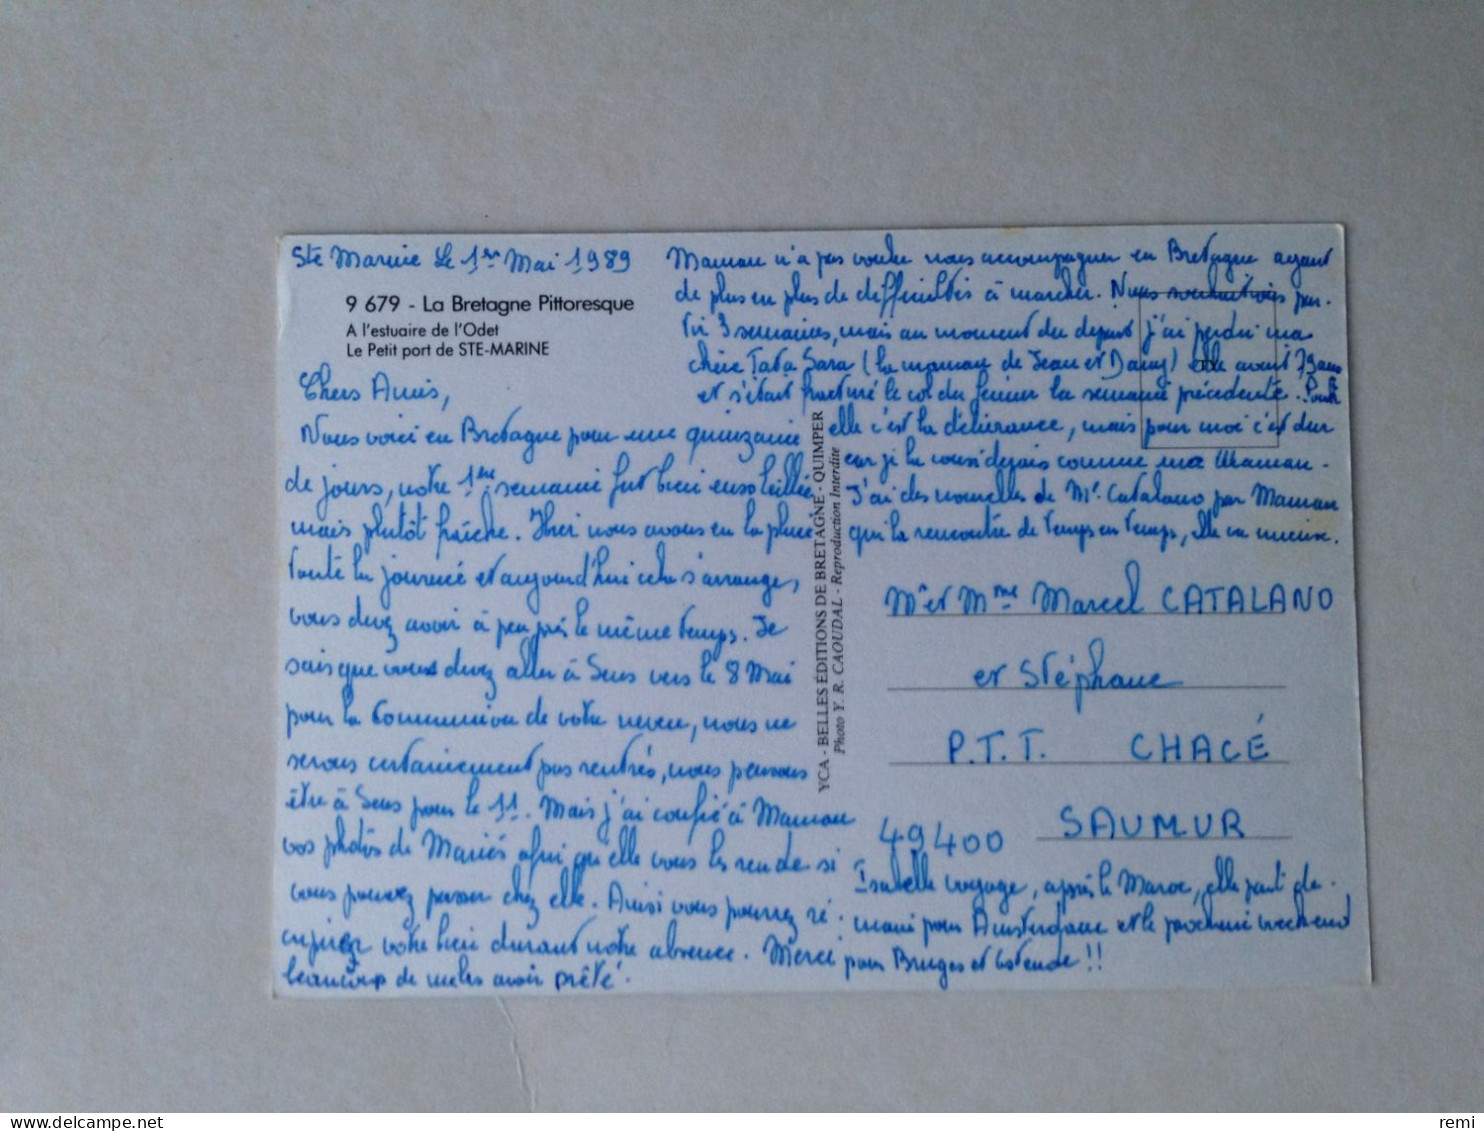 Ste Marine le 1er Mai 1989
9 679 - La Bretagne Pittoresque
A l'estuaire de l'Odet
Le Petit port de STE-MARINE
Chers Amis,
Nous voici en Bretagne pour une quinzaine
de jours, notre 1ère semaine fut bien ensoleillée
mais plutôt fraîche. Hier nous avons eu la pluie
toute la journée et aujourd'hui cela s'arrange,
vous devez avoir à peu près le même temps. Je
sais que vous devez aller à Sens vers le 8 Mai
pour la Communion de votre neveu, nous ne
serons certainement pas rentrés, nous pensons
être à Sens pour le 11. Mais j'ai confié à Maman
vos photos de Mariés afin qu'elle vous les rende si
vous pouvez passer chez elle. Ainsi vous pourrez ré-
cupérer votre bien durant notre absence. Merci
beaucoup de me les avoir prêté.
Maman n'a pas voulu nous accompagner en Bretagne ayant
de plus en plus de difficultés à marcher. Nous souhaitions par-
tir 3 semaines, mais au moment du départ j'ai perdu ma
chère Tata Sara (la maman de Jean et Dany) elle avait 79 ans
et s'était fracturé le col du fémur la semaine précédente. Pour
elle c'est la délivrance, mais pour moi c'est dur
car je la considérais comme ma Maman.
J'ai des nouvelles de Mr Catalano par Maman
qui la rencontre de temps en temps, elle va mieux.
YCA - BELLES ÉDITIONS DE BRETAGNE - QUIMPER
Photo Y. R. CAOUDAL - Reproduction Interdite
Mr et Mme Marcel CATALANO
et Stéphane
P.T.T. CHACÉ
49400 SAUMUR
Isabelle voyage, après le Maroc, elle part de-
main pour Amsterdam et le prochain week-end
pour Bruges et Ostende !!
remi - delcampe.net